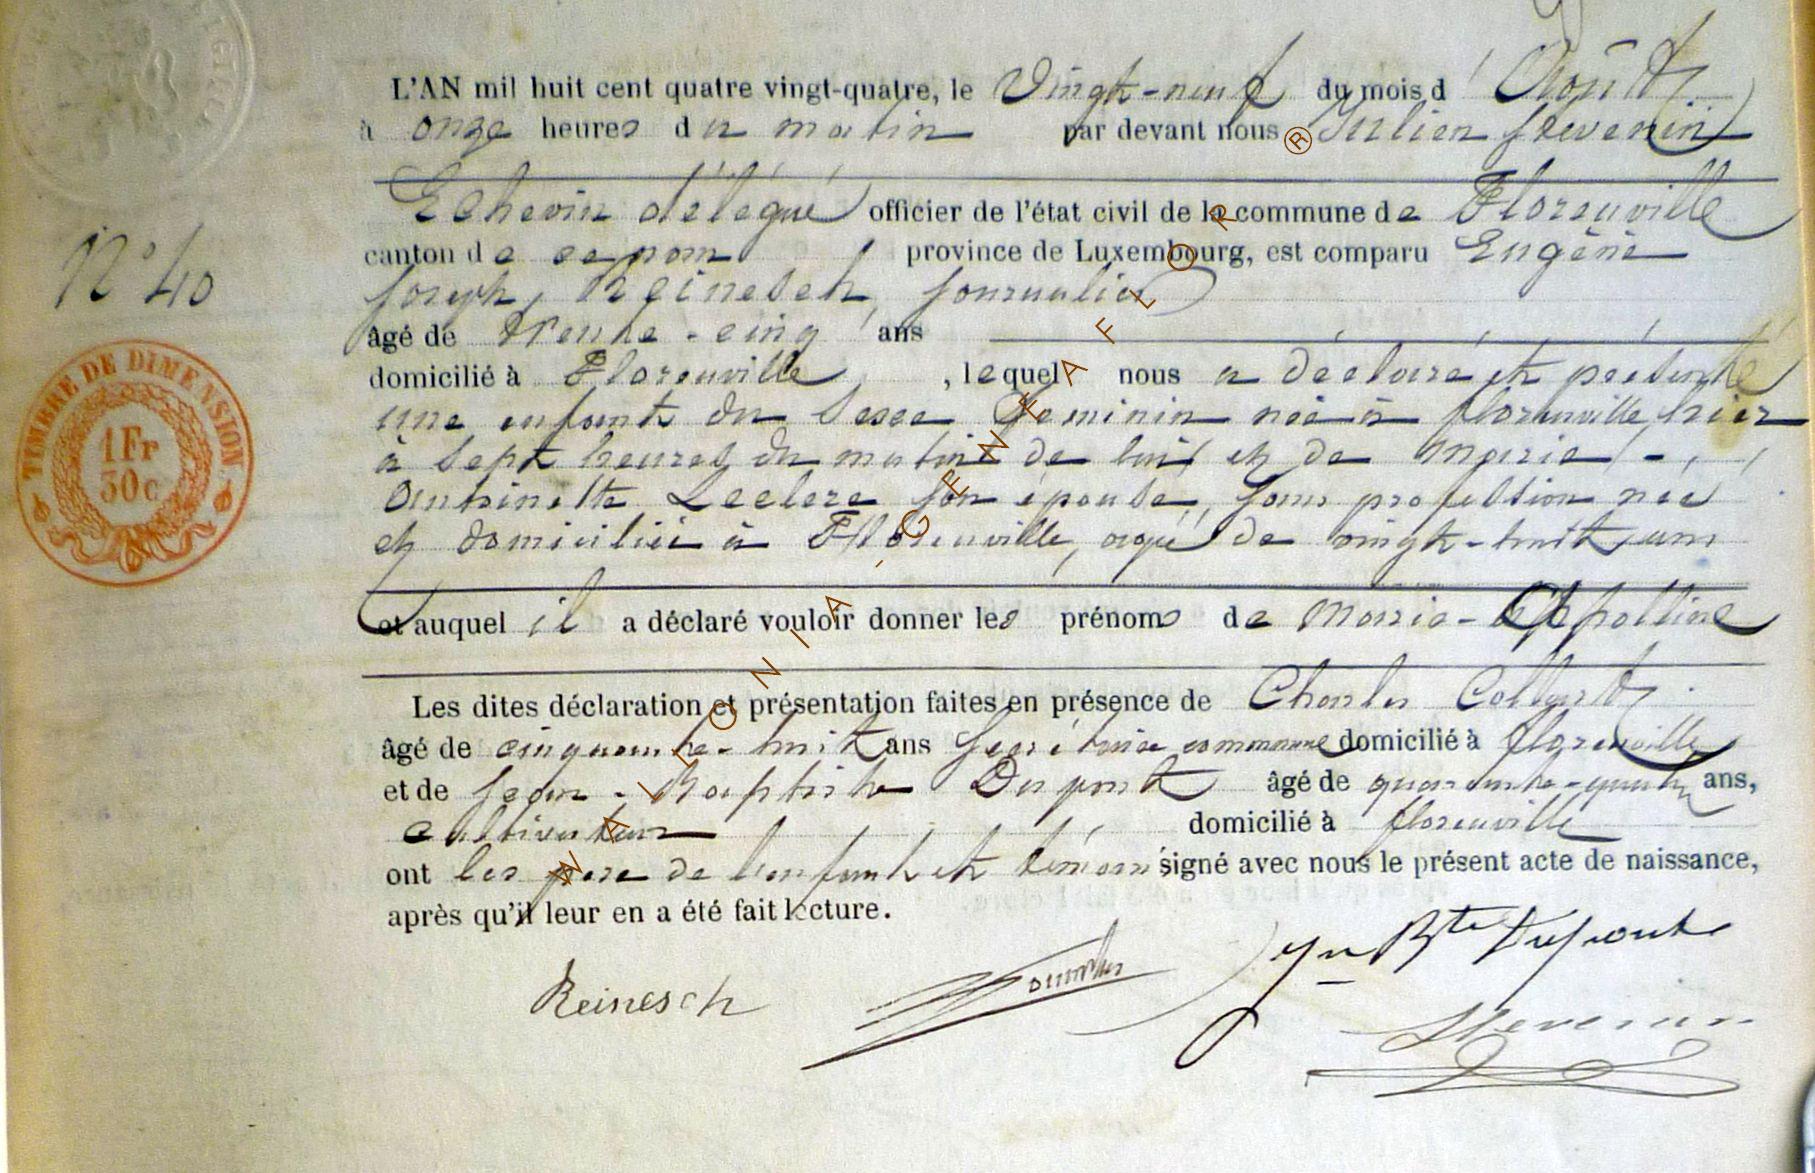 L'AN mil huit cent quatre vingt-quatre, le Vingt-neuf du mois d'Août
à onze heures du matin par devant nous Julien Stevenin
Echevin délégué officier de l'état civil de la commune de Florenville
canton de ce nom province de Luxembourg, est comparu Eugène
Joseph, Reinesch, Journalier
âgé de trente-cinq ans
domicilié à Florenville, lequel nous a déclaré et présenté
une enfant du sexe féminin née à florenville hier
à sept heures du matin de lui et de Marie-
Antoinette Leclere son épouse, sans profession née
et domiciliée à Florenville, agée de vingt-huit ans
et auquel il a déclaré vouloir donner les prénoms de Marie-Appolline
Les dites déclaration et présentation faites en présence de Charles
âgé de cinquante-huit ans Secrétaire communal domicilié à florenville
et de Jean-Baptiste Dupont âgé de quarante-quatre ans,
cultivateur domicilié à florenville
ont les père de l'enfant et témoins signé avec nous le présent acte de naissance,
après qu'il leur en a été fait lecture.
N° 40
TIMBRE DE DIMENSION
1 Fr
30c
Reinesch
Jn Bte Dupont
Stevenin
WALLONIA-GENEAFLOR ®